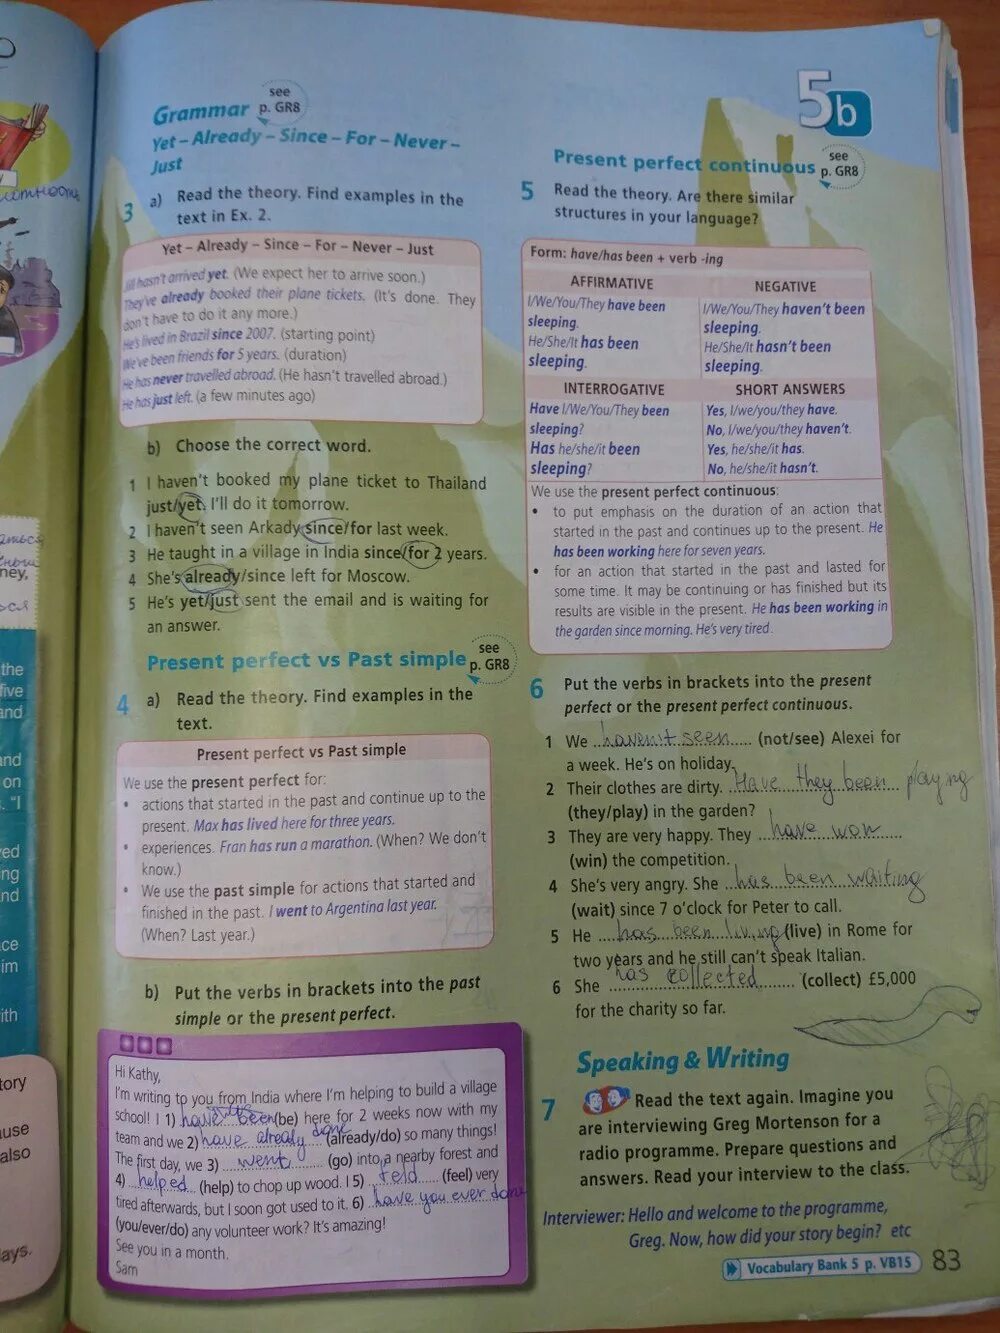 Grammar
see
p. GR8
Yet – Already – Since – For – Never –
Just
3 a) Read the theory. Find examples in the
text in Ex. 2.
Yet – Already – Since – For – Never – Just
hasn't arrived yet. (We expect her to arrive soon.)
They've already booked their plane tickets. (It's done. They
don't have to do it any more.)
He's lived in Brazil since 2007. (starting point)
We've been friends for 5 years. (duration)
He has never travelled abroad. (He hasn't travelled abroad.)
He has just left. (a few minutes ago)
b) Choose the correct word.
1 I haven't booked my plane ticket to Thailand
just/yet. I'll do it tomorrow.
2 I haven't seen Arkady since/for last week.
3 He taught in a village in India since/for 2 years.
4 She's already/since left for Moscow.
5 He's yet/just sent the email and is waiting for
an answer.
Present perfect vs Past simple
see
p. GR8
4 a) Read the theory. Find examples in the
text.
Present perfect vs Past simple
We use the present perfect for:
• actions that started in the past and continue up to the
present. Max has lived here for three years.
• experiences. Fran has run a marathon. (When? We don't
know.)
• We use the past simple for actions that started and
finished in the past. I went to Argentina last year.
(When? Last year.)
b) Put the verbs in brackets into the past
simple or the present perfect.
Hi Kathy,
I'm writing to you from India where I'm helping to build a village
school! I 1) have been (be) here for 2 weeks now with my
team and we 2) have already done (already/do) so many things!
The first day, we 3) went (go) into a nearby forest and
4) helped (help) to chop up wood. I 5) feld (feel) very
tired afterwards, but I soon got used to it. 6) have you ever done
(you/ever/do) any volunteer work? It's amazing!
See you in a month.
Sam
5b
Present perfect continuous
see
p. GR8
5 Read the theory. Are there similar
structures in your language?
Form: have/has been + verb -ing
AFFIRMATIVE
I/We/You/They have been
sleeping.
He/She/It has been
sleeping.
NEGATIVE
I/We/You/They haven't been
sleeping.
He/She/It hasn't been
sleeping.
INTERROGATIVE
Have I/We/You/They been
sleeping?
Has he/she/it been
sleeping?
SHORT ANSWERS
Yes, I/we/you/they have.
No, I/we/you/they haven't.
Yes, he/she/it has.
No, he/she/it hasn't.
We use the present perfect continuous:
• to put emphasis on the duration of an action that
started in the past and continues up to the present. He
has been working here for seven years.
• for an action that started in the past and lasted for
some time. It may be continuing or has finished but its
results are visible in the present. He has been working in
the garden since morning. He's very tired.
6 Put the verbs in brackets into the present
perfect or the present perfect continuous.
1 We haven't seen (not/see) Alexei for
a week. He's on holiday.
2 Their clothes are dirty. Have they been playing
(they/play) in the garden?
3 They are very happy. They have won
(win) the competition.
4 She's very angry. She has been waiting
(wait) since 7 o'clock for Peter to call.
5 He has been living (live) in Rome for
two years and he still can't speak Italian.
6 She has collected (collect) £5,000
for the charity so far.
Speaking & Writing
7 Read the text again. Imagine you
are interviewing Greg Mortenson for a
radio programme. Prepare questions and
answers. Read your interview to the class.
Interviewer: Hello and welcome to the programme,
Greg. Now, how did your story begin? etc
Vocabulary Bank 5 p. VB15
83